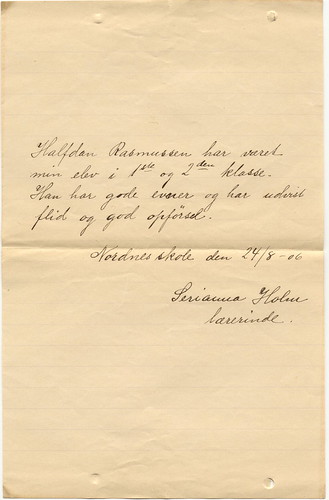 Halfdan Rasmussen har været
min elev i 1ste og 2den klasse.
Han har gode evner og har udvist
flid og god opførsel.
Nordnes skole den 24/8 - 06
Serianna Holm
lærerinde.